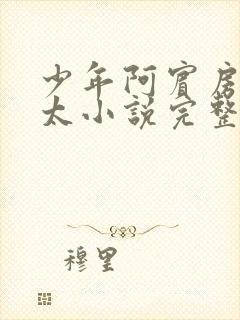 少年阿賓房
太小說完整
穆里